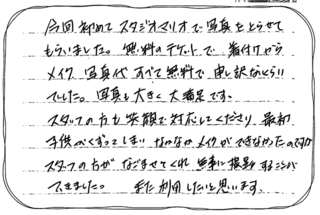 今回初めてスタジオマリオで写真をとらせて
もらいました。無料のチケットで着付けから
メイク、写真代すべて無料で申し訳ないくらい
でした。写真も大きく大満足です。
スタッフの方も笑顔で対応してくださり、最初
子供がぐずってしまい、なかなかメイクができなかったのですが
スタッフの方がなごませてくれ無事に撮影することが
できました。また利用したいと思います。